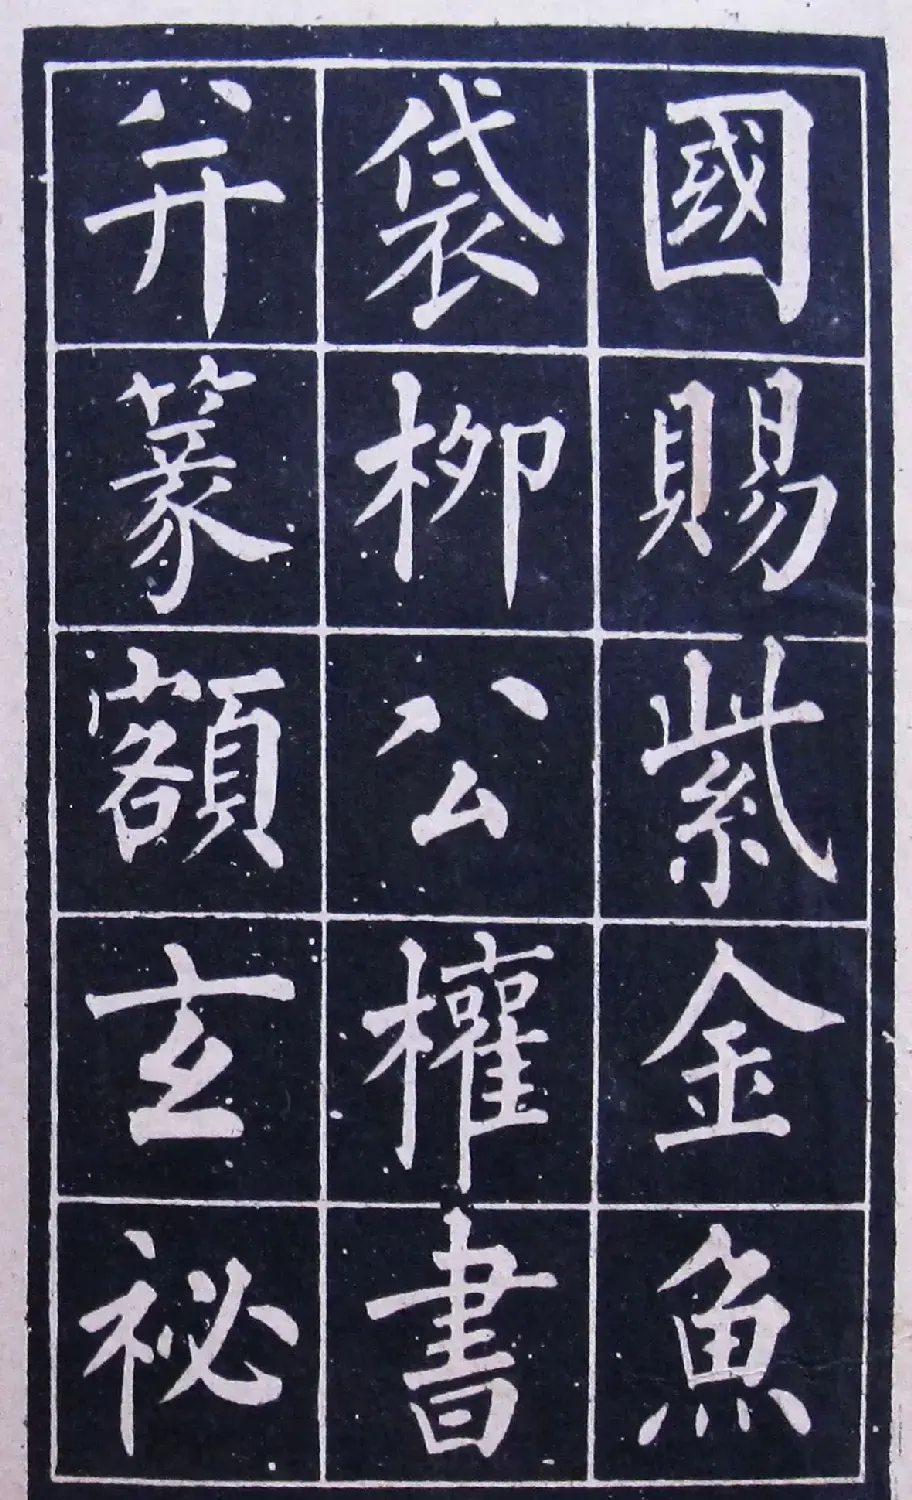 國賜紫金魚
袋柳公權書
并篆額玄
祕